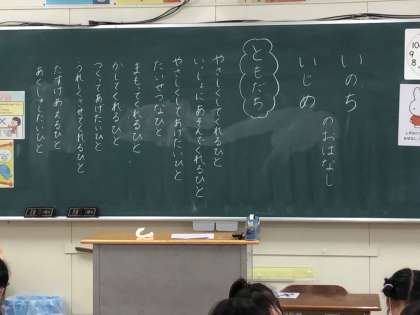 いのち
いじめ
のおはなし
ともだち
やさしくしてくれるひと
いっしょにあそんでくれるひと
やさしくしてあげたいひと
たいせつなひと
まもってくれるひと
かしてくれるひと
つくってあげたいひと
うれしくさせてくれるひと
たすけあえるひと
あくしゅしたいひと